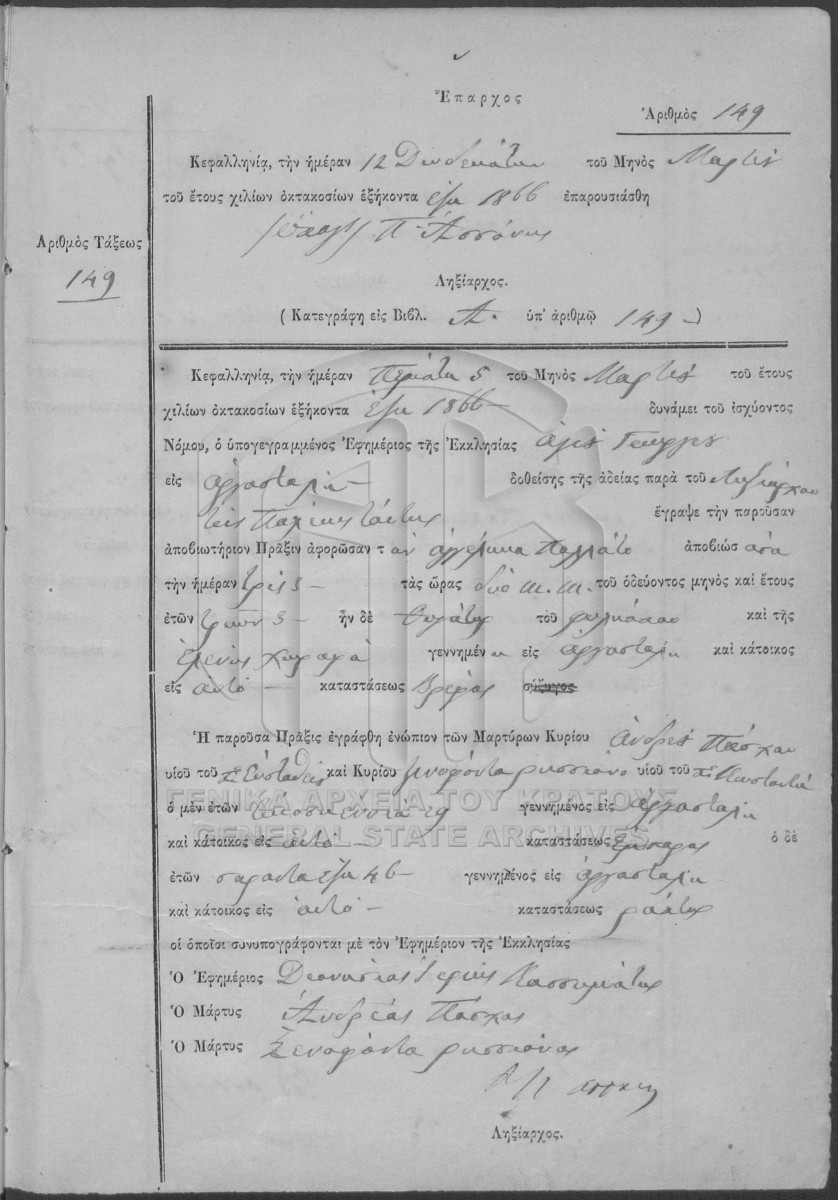 Ἔπαρχος
Ἀριθμὸς 149
Κεφαλληνίᾳ, τὴν ἡμέραν 12 Δωδεκάτην τοῦ Μηνὸς Μαρτίου
τοῦ ἔτους χιλίων ὀκτακοσίων ἑξήκοντα ἕξη 1866 ἐπαρουσιάσθη
Ἀριθμὸς Τάξεως
149
Ληξίαρχος.
( Κατεγράφη εἰς Βιβλ. Α. ὑπ' ἀριθμῷ 149 - )
Κεφαλληνίᾳ, τὴν ἡμέραν Πέμπτη 5 τοῦ Μηνὸς Μαρτίου τοῦ ἔτους
χιλίων ὀκτακοσίων ἑξήκοντα ἕξη 1866 - δυνάμει τοῦ ἰσχύοντος
Νόμου, ὁ ὑπογεγραμμένος Ἐφημέριος τῆς Ἐκκλησίας ἁγίου Γεωργίου
εἰς ἀργοστόλι - δοθείσης τῆς ἀδείας παρὰ τοῦ Ληξιάρχου
τῆς Πόλεως ταύτης ἔγραψε τὴν παροῦσαν
ἀποβιωτήριον Πρᾶξιν ἀφορῶσαν τ ὴν ἀγγελικα ἀποβιώσ ασα
τὴν ἡμέραν τρὶς 3 - τὰς ὥρας δύο μ. μ. τοῦ ὁδεύοντος μηνὸς καὶ ἔτους
ἐτῶν τριῶν 3 - ἦν δὲ θυγάτηρ τοῦ καὶ τῆς
Ἑλένης γεννημέν η εἰς ἀργοστόλι καὶ κάτοικος
εἰς αὐτό - καταστάσεως βρέφος σύζυγος
Ἡ παροῦσα Πρᾶξις ἐγράφθη ἐνώπιον τῶν Μαρτύρων Κυρίου ἀνδρέου Πάσχου
υἱοῦ τοῦ πο Εὐσταθίου καὶ Κυρίου ξενοφόντα ρυσσιάνο υἱοῦ τοῦ πο Κωσταντῆ
ὁ μὲν ἐτῶν εἴκοση ἐννέα 29 γεννημένος εἰς ἀργοστόλι
καὶ κάτοικος εἰς αὐτό - καταστάσεως ἔμπορος ὁ δὲ
ἐτῶν σαράντα ἕξη 46 - γεννημένος εἰς ἀργοστόλι -
καὶ κάτοικος εἰς αὐτό - καταστάσεως ράπτης
οἱ ὁποῖοι συνυπογράφονται μὲ τὸν Ἐφημέριον τῆς Ἐκκλησίας
Ὁ Ἐφημέριος Διονύσιος Ἱερεὺς Κασσιμάτης
Ὁ Μάρτυς Ἀνδρέας Πάσχος
Ὁ Μάρτυς Ξενοφόντα ρυσσιάνος
Ληξίαρχος.
ΓΕΝΙΚΑ ΑΡΧΕΙΑ ΤΟΥ ΚΡΑΤΟΥΣ
GENERAL STATE ARCHIVES